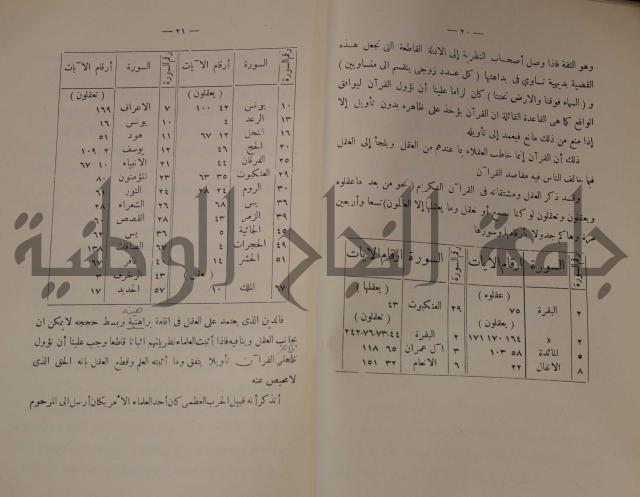 — ٢٠ —
وهو الثقة فاذا وصل أصحاب النظرية إلى الادلة القاطعة التى تجعل هذه
القضية بديهية تساوى فى بداهتها ( كل عدد زوجى ينقسم الى متساويين )
و ( السماء فوقنا والارض تحتنا ) كان لزاما علينا أن نؤول القرآن ليوافق
الواقع كما هى القاعدة القائلة ان القرآن يؤخذ على ظاهره بدون تأويل إلا
إذا منع من ذلك مانع فيعمد إلى تأويله
ذلك أن القرآن إنما خاطب العقلاء بما عندهم من العقل ويلجأ إلى العقل
فيما خالف الناس فيه مقاصد القرآن
وقد ذكر العقل ومشتقاته فى القرآن الكريم ( نحو من بعد ما عقلوه
ويعقلون وتعقلون لو كنا نسمع أو نعقل وما يعقلها إلا العالمون ) تسعا وأربعين
مرة وهاكم جدولا بأرقامها وسورها
رقم السورة السورة أرقام الآيات رقم السورة السورة أرقام الآيات
( عقلوه ) ( يعقلها )
٢ البقرة ٧٥ ٢٩ العنكبوت ٤٣
( يعقلون ) ( تعقلون )
٢ » ١٦٤ ١٧٠ ١٧١ ٢ البقرة ٤٤-٧٣-٧٦-٢٤٢
٥ المائدة ٥٨ ١٠٣ ٣ آل عمران ٦٥ ١١٨
٨ الانفال ٢٢ ٦ الانعام ٣٢ ١٥١
— ٢١ —
رقم السورة السورة أرقام الآيات رقم السورة السورة أرقام الآيات
( يعقلون ) ( تعقلون )
١٠ يونس ٤٢ ١٠٠ ٧ الاعراف ١٦٩
١٣ الرعد ٤ ١٠ يونس ١٦
١٦ النحل ١٢ ٦٧ ١١ هود ٥١
٢٢ الحج ٤٦ ١٢ يوسف ٢ ١٠٩
٢٥ الفرقان ٤٤ ٢١ الانبياء ١٠ ٦٧
٢٩ العنكبوت ٣٥ ٦٣ ٢٣ المؤمنون ٨٠
٣٠ الروم ٢٤ ٢٨ ٢٤ النور ٦١
٣٦ يس ٦٨ ٢٦ الشعراء ٢٨
٣٩ الزمر ٤٣ ٢٨ القصص
٤٥ الجاثية ٥ ٣٦ يس ٦٢
٤٩ الحجرات ٤ الصافات ١٣٨
٥١ الحشر ١٤ غافر ٦٧
( نعقل ) ٤٣ الزخرف ٣
٦٧ الملك ١٠ ٥٧ الحديد ١٧
فالدين الذى يعتمد على العقل فى اقامة براهينه وبسط حججه لا يمكن ان
يجانب العقل وينافيه فاذا أثبت العلماء نظرياتهم اثباتا قاطعا وجب علينا أن نؤول
القرآن تأويلا يتفق وما أثبته العلم وقطع العقل بانه الحق الذى
لا محيص عنه
أتذكر أنه قبيل الحرب العظمى كان أحد العلماء الأمريكان أرسل الى المرحوم
جامعة النجاح الوطنية